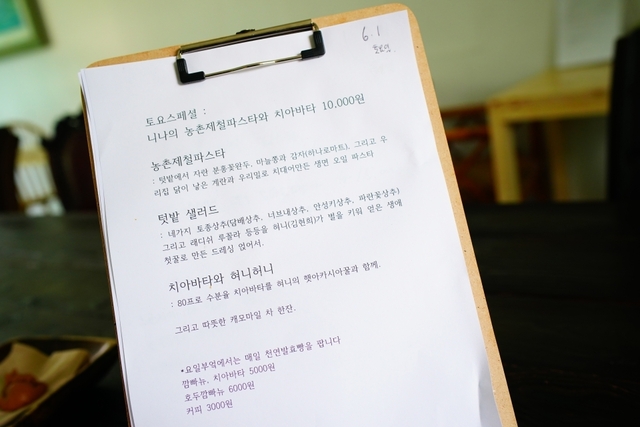 6.1
토요일
토요스페셜 :
니나의 농촌제철파스타와 치아바타 10,000원
농촌제철파스타
: 텃밭에서 자란 분홍꽃완두, 마늘쫑과 감자(하나로마트), 그리고 우
리집 닭이 낳은 계란과 우리밀로 치대어만든 생면 오일 파스타
텃밭 샐러드
: 네가지 토종상추(담배상추, 너브내상추, 안성키상추, 파란꽃상추)
그리고 래디쉬 루꼴라 등등을 허니(김현희)가 벌을 키워 얻은 생애
첫꿀로 만든 드레싱 얹어서.
치아바타와 허니허니
: 80프로 수분율 치아바타를 허니의 햇아카시아꿀과 함께.
그리고 따뜻한 캐모마일 차 한잔.
*요일부엌에서는 매일 천연발효빵을 팝니다
깜빠뉴, 치아바타 5000원
호두깜빠뉴 6000원
커피 3000원